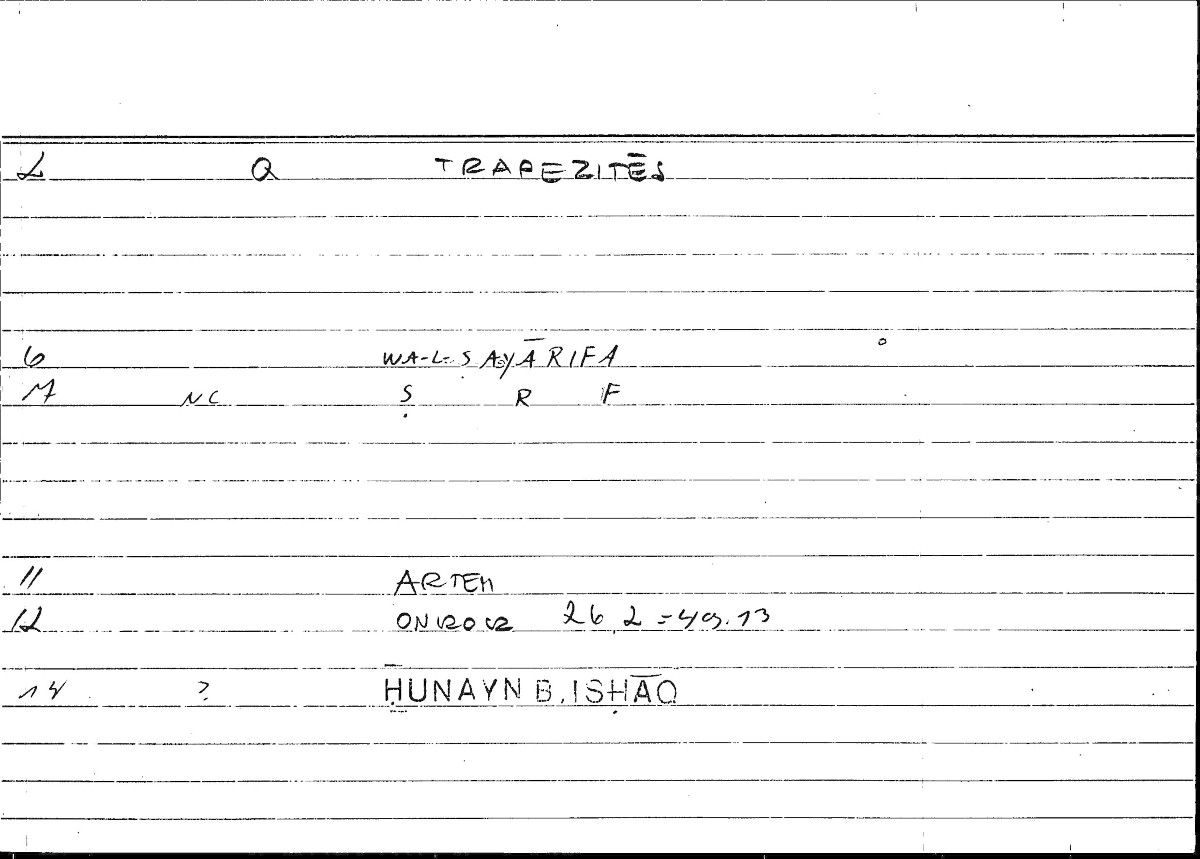 2 Q TRAPEZITĒS
6 WA-L-ṢAYĀRIFA
7 NC Ṣ R F
11 ARTEM
12 ONIROCR 26,2 = 49.13
14 ? ḤUNAYN B. ISḤĀQ